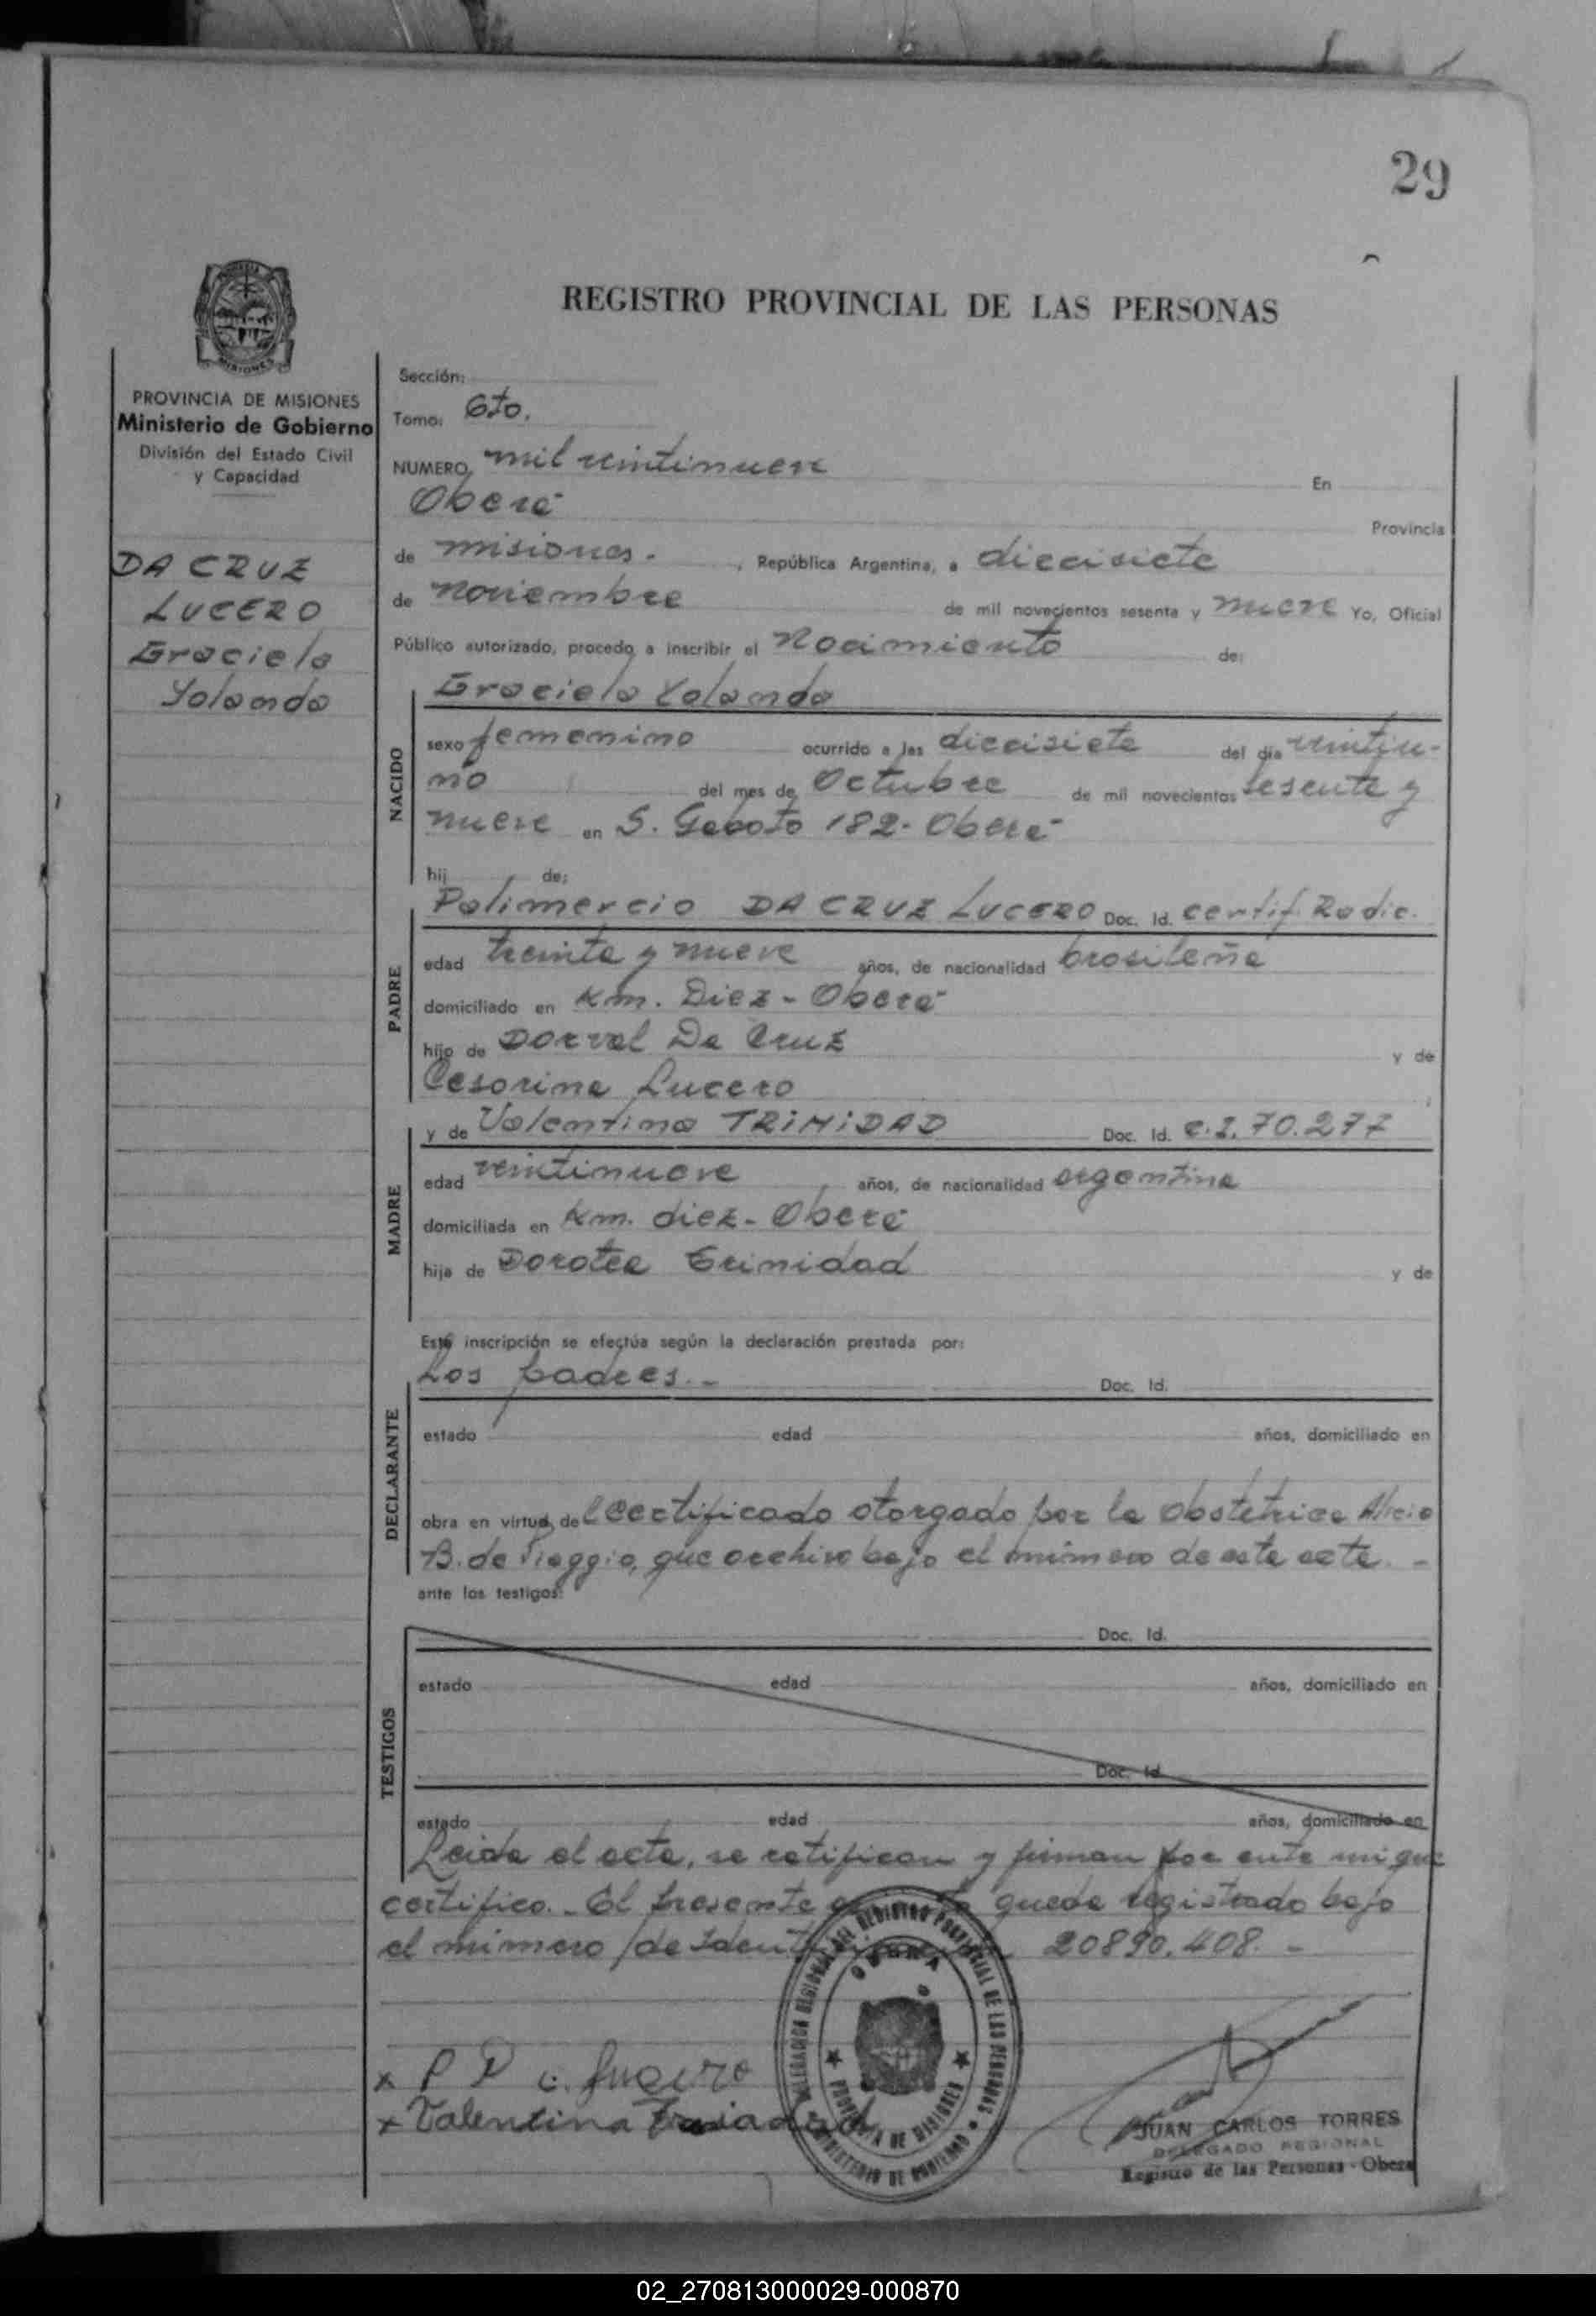 29
REGISTRO PROVINCIAL DE LAS PERSONAS
MISIONES
PROVINCIA DE MISIONES
Ministerio de Gobierno
División del Estado Civil
y Capacidad
DA CRUZ
LUCERO
Graciela
Yolanda
Sección:
Tomo: 6to.
NUMERO mil veintinueve En
Oberá Provincia
de misiones. , República Argentina, a diecisiete
de noviembre de mil novecientos sesenta y nueve Yo, Oficial
Público autorizado, procedo a inscribir el Nacimiento de:
Graciela Yolanda
NACIDO
sexo femenino ocurrido a las diecisiete del día veintiu-
no del mes de Octubre de mil novecientos sesenta y
nueve en S. Gaboto 182- Oberá
hij de:
PADRE
Polimercio DA CRUZ LUCERO Doc. Id. certif. Radic.
edad treinta y nueve años, de nacionalidad brasileña
domiciliado en Km. Diez - Oberá
hijo de Dorval Da Cruz y de
Cesarina Lucero
MADRE
y de Valentina TRINIDAD Doc. Id. C.I. 70.277
edad veintinueve años, de nacionalidad argentina
domiciliada en Km. diez- Oberá
hija de Dorotea Trinidad y de
Esta inscripción se efectúa según la declaración prestada por:
DECLARANTE
Los padres.- Doc. Id.
estado edad años, domiciliado en
obra en virtud de l certificado otorgado por la obstetrica Alicia
B. de que archivo bajo el número de este acta. -
ante los testigos:
TESTIGOS
Doc. Id.
estado edad años, domiciliado en
Doc. Id.
estado edad años, domiciliado en
Leida el acta, se ratifican y firman por ante mi que
certifico.- El presente queda registrado bajo
el número de 20890.408. -
DELEGACION REGIONAL DEL REGISTRO PROVINCIAL DE LAS PERSONAS
OBERA
PROVINCIA DE MISIONES
MINISTERIO DE GOBIERNO
x P D c. Lucero
x Valentina
JUAN CARLOS TORRES
DELEGADO REGIONAL
Registro de las Personas - Obera
02_270813000029-000870